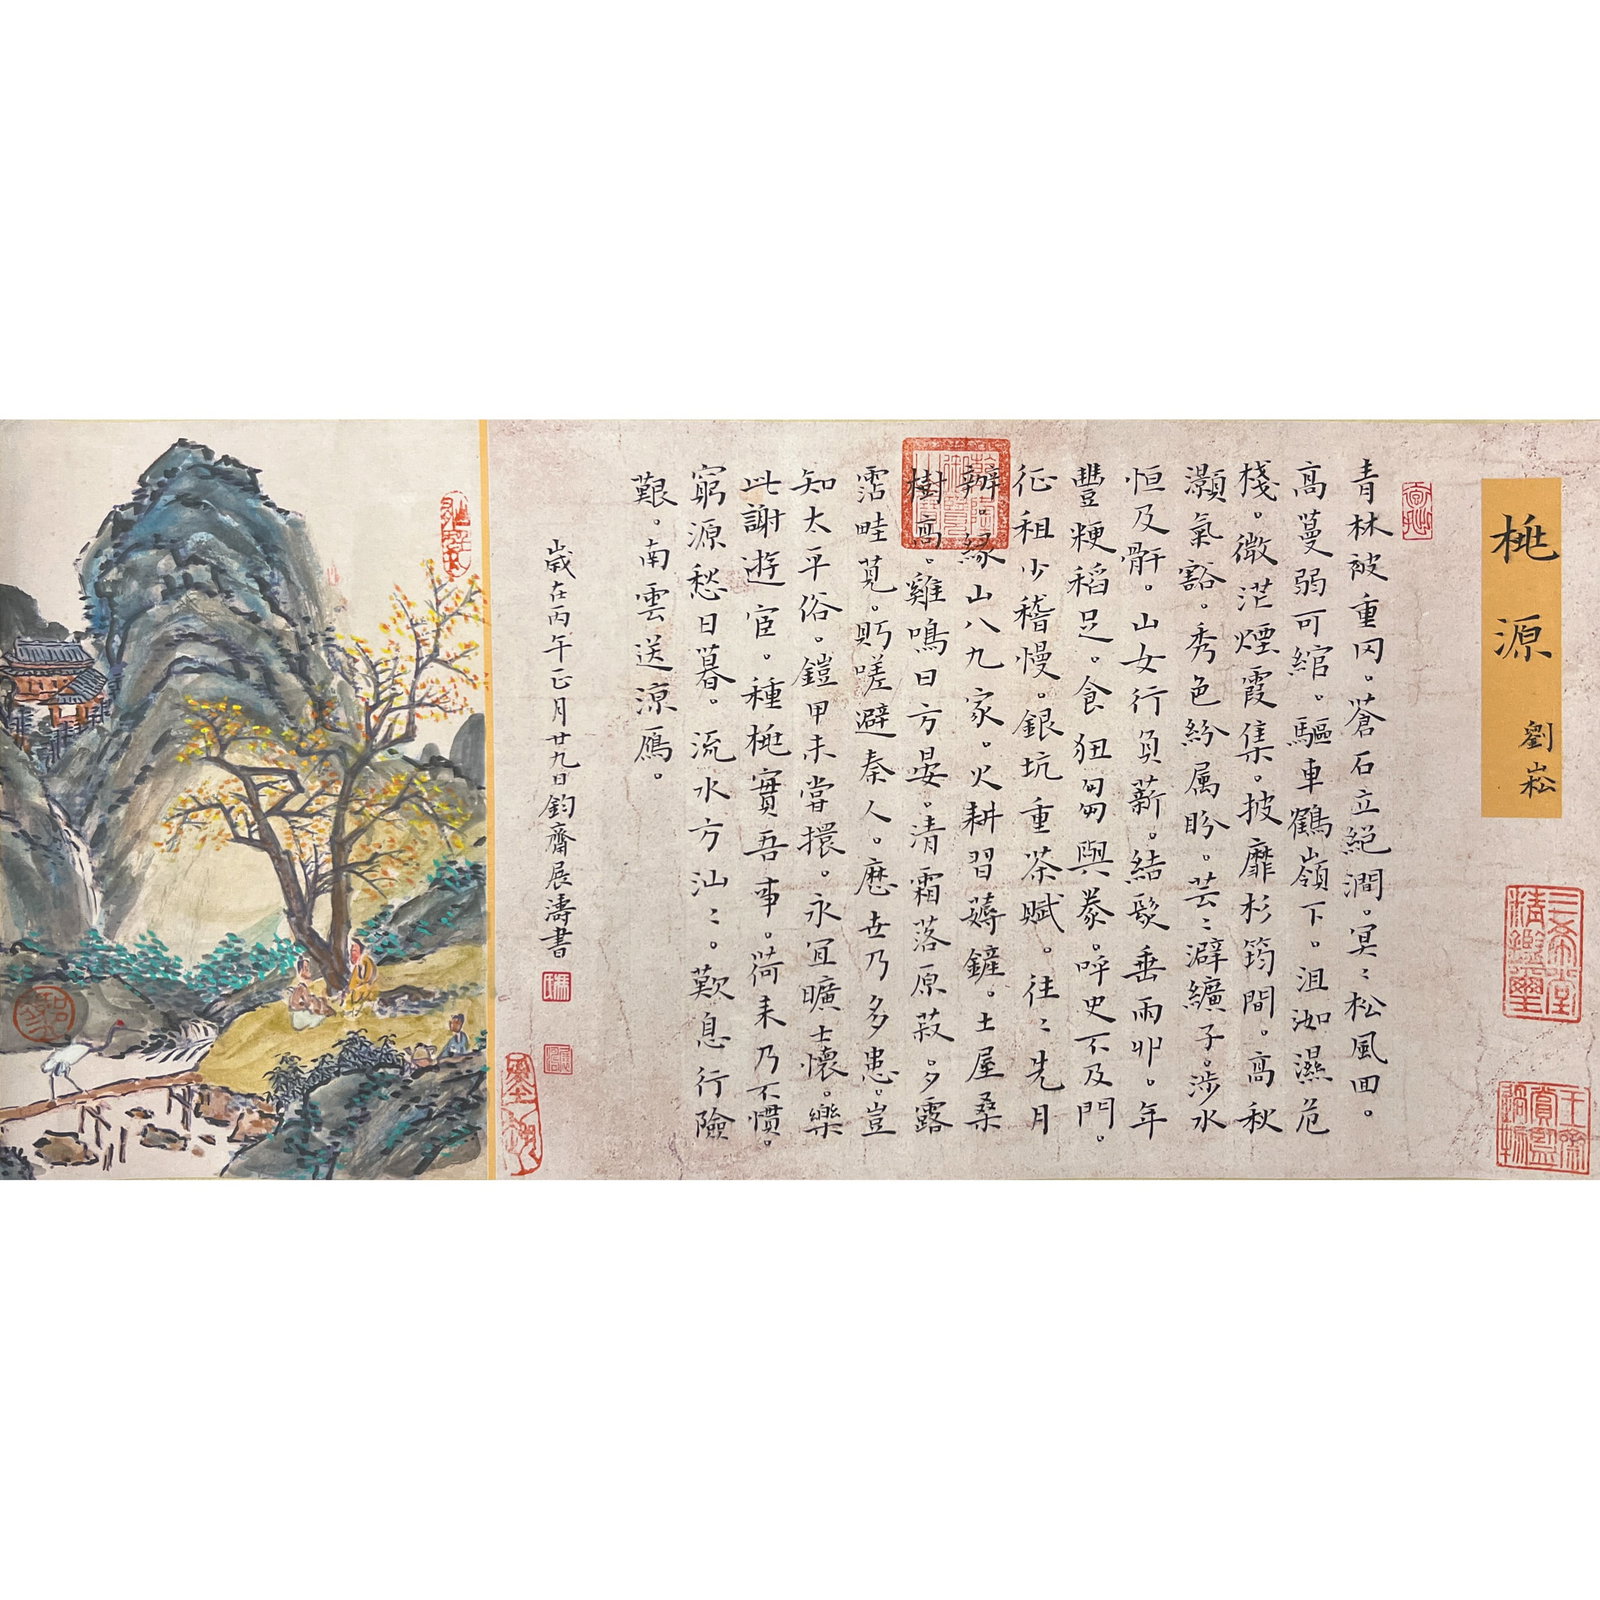 桃源
劉崧
青林被重冈。蒼石立絕澗。冥〻松風回。
高蔓弱可綰。驅車鶴嶺下。沮洳濕危
棧。微茫煙霞集。披靡杉筠間。高秋
灝氣豁。秀色紛属盼。芸〻澼纊子。涉水
恒及骭。山女行負薪。結髮垂兩丱。年
豐粳稻足。食狃芻與豢。呼史不及門。
征租少稽慢。銀坑重茶賦。往〻先月
辦。緣山八九家。火耕習薅鏟。土屋桑
樹高。雞鳴日方晏。清霜落原菽。夕露
霑畦莧。眄嗟避秦人。歷世乃多患。豈
知太平俗。鎧甲未嘗擐。永宜曠士懷。樂
此謝遊宦。種桃實吾事。荷耒乃不慣。
窮源愁日暮。流水方汕〻。歎息行險
艱。南雲送涼鴈。
歲在丙午正月廿九日鈞齋展濤書
三希堂精鑑璽
乾隆御覽之寶